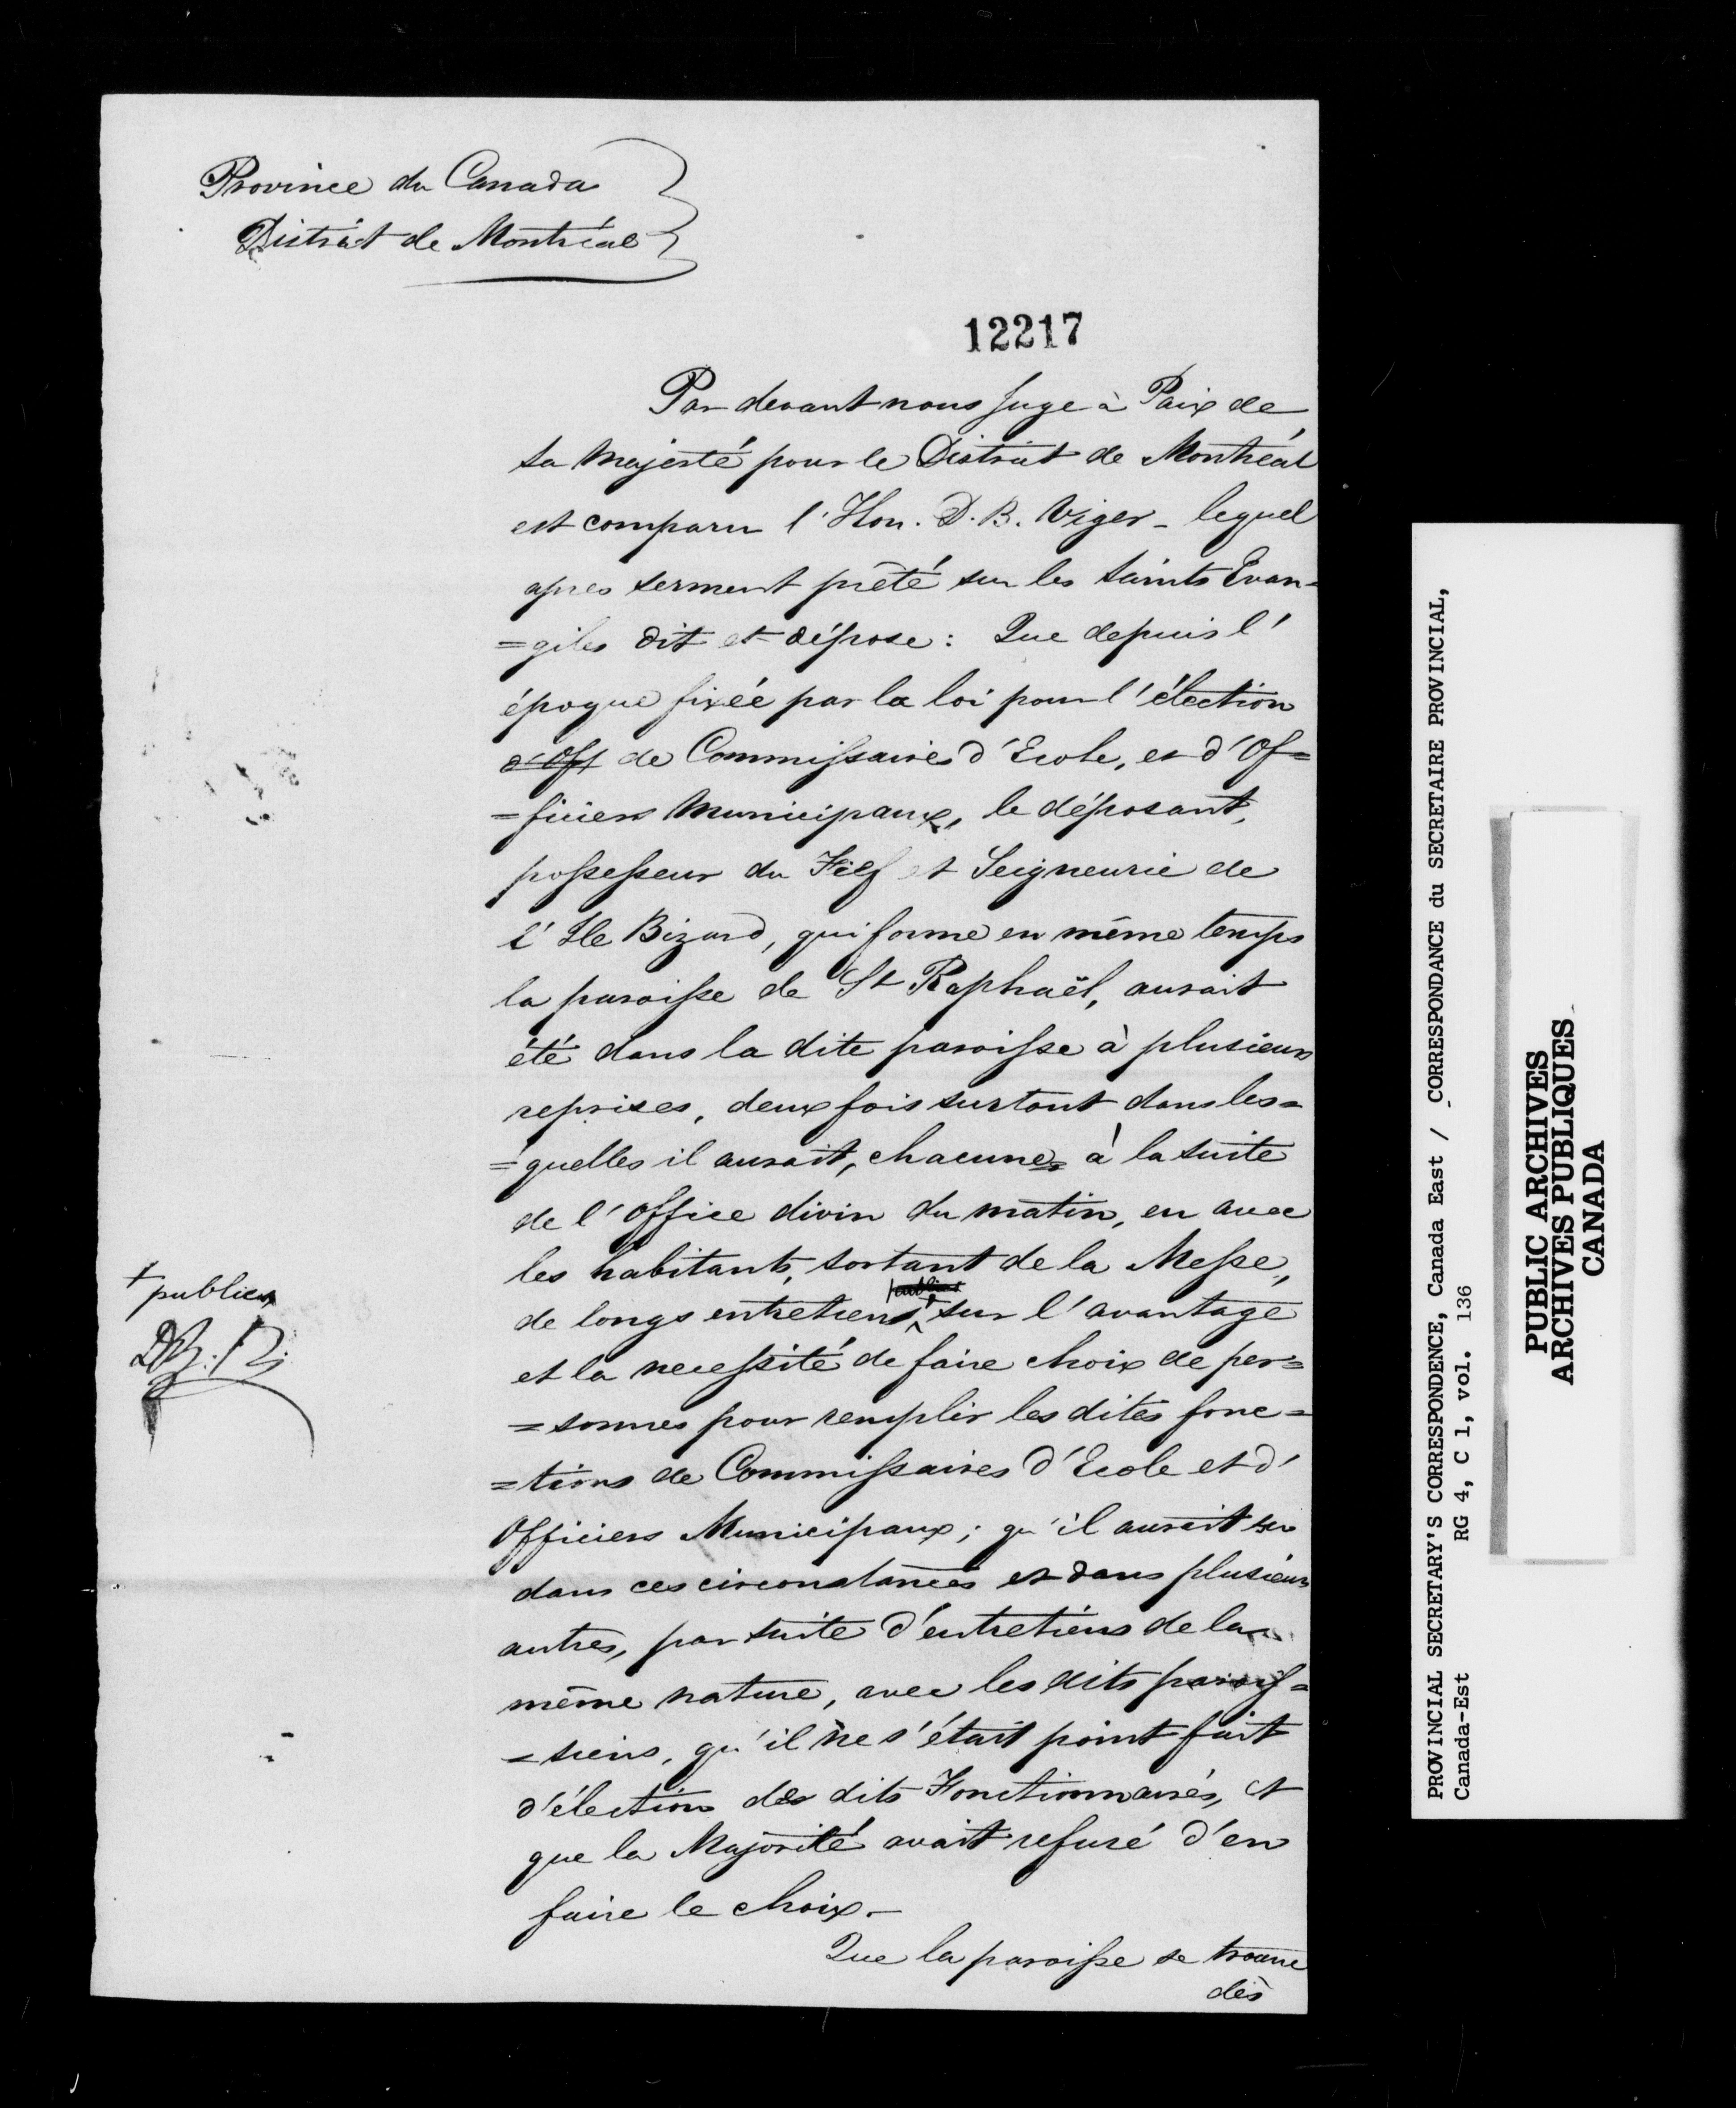 Province du Canada
District de Montréal
12217
Par devant nous Juge à Paix de
Sa Majesté pour le District de Montréal
est comparu l'Hon. D. B. Viger - lequel
apres serment prêté sur les Saints Evan=
=giles dit et dépose : Que depuis l'
époque fixée par la loi pour l'élection
d'Off de Commissaires d'Ecole, et d'Of=
=ficiers Municipaux, le déposant,
possesseur du Fief et Seigneurie de
l'Ile Bizard, qui forme en même temps
la paroisse de St Raphaël, aurait
été dans la dite paroisse à plusieurs
reprises, deux fois surtout dans les=
=quelles il aurait, chacune, à la suite
de l'Office divin du matin, eu avec
les habitants, sortant de la Messe,
publics
de longs entretiens + sur l'avantage
+ publics
et la necessité de faire choix de per=
=sonnes pour remplir les dites fonc=
=tions de Commissaires d'Ecole et d'
Officiers Municipaux ; qu'il aurait su
dans ces circonstances et dans plusieurs
autres, par suite d'entretiens de la
même nature, avec les dits parois=
=siens, qu'il ne s'était point fait
d'élection des dits Fonctionnaires, et
que la Majorité avait refusé d'en
faire le choix.-
Que la paroisse se trouve
dès
PROVINCIAL SECRETARY'S CORRESPONDENCE, Canada East / CORRESPONDANCE du SECRETAIRE PROVINCIAL,
Canada-Est RG 4, C 1, vol. 136
PUBLIC ARCHIVES
ARCHIVES PUBLIQUES
CANADA